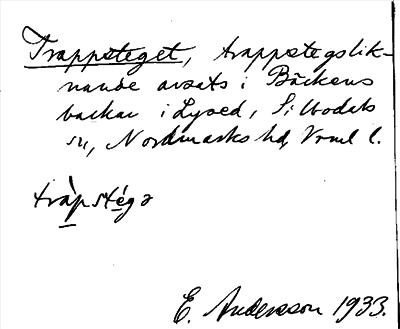 Trappsteget, trappstegslik-
nande avsats i Bäckens
backar i Lysed, Silbodals
sn, Nordmarks hd, Vrml l.
tràpstégə
E. Andersson 1933.